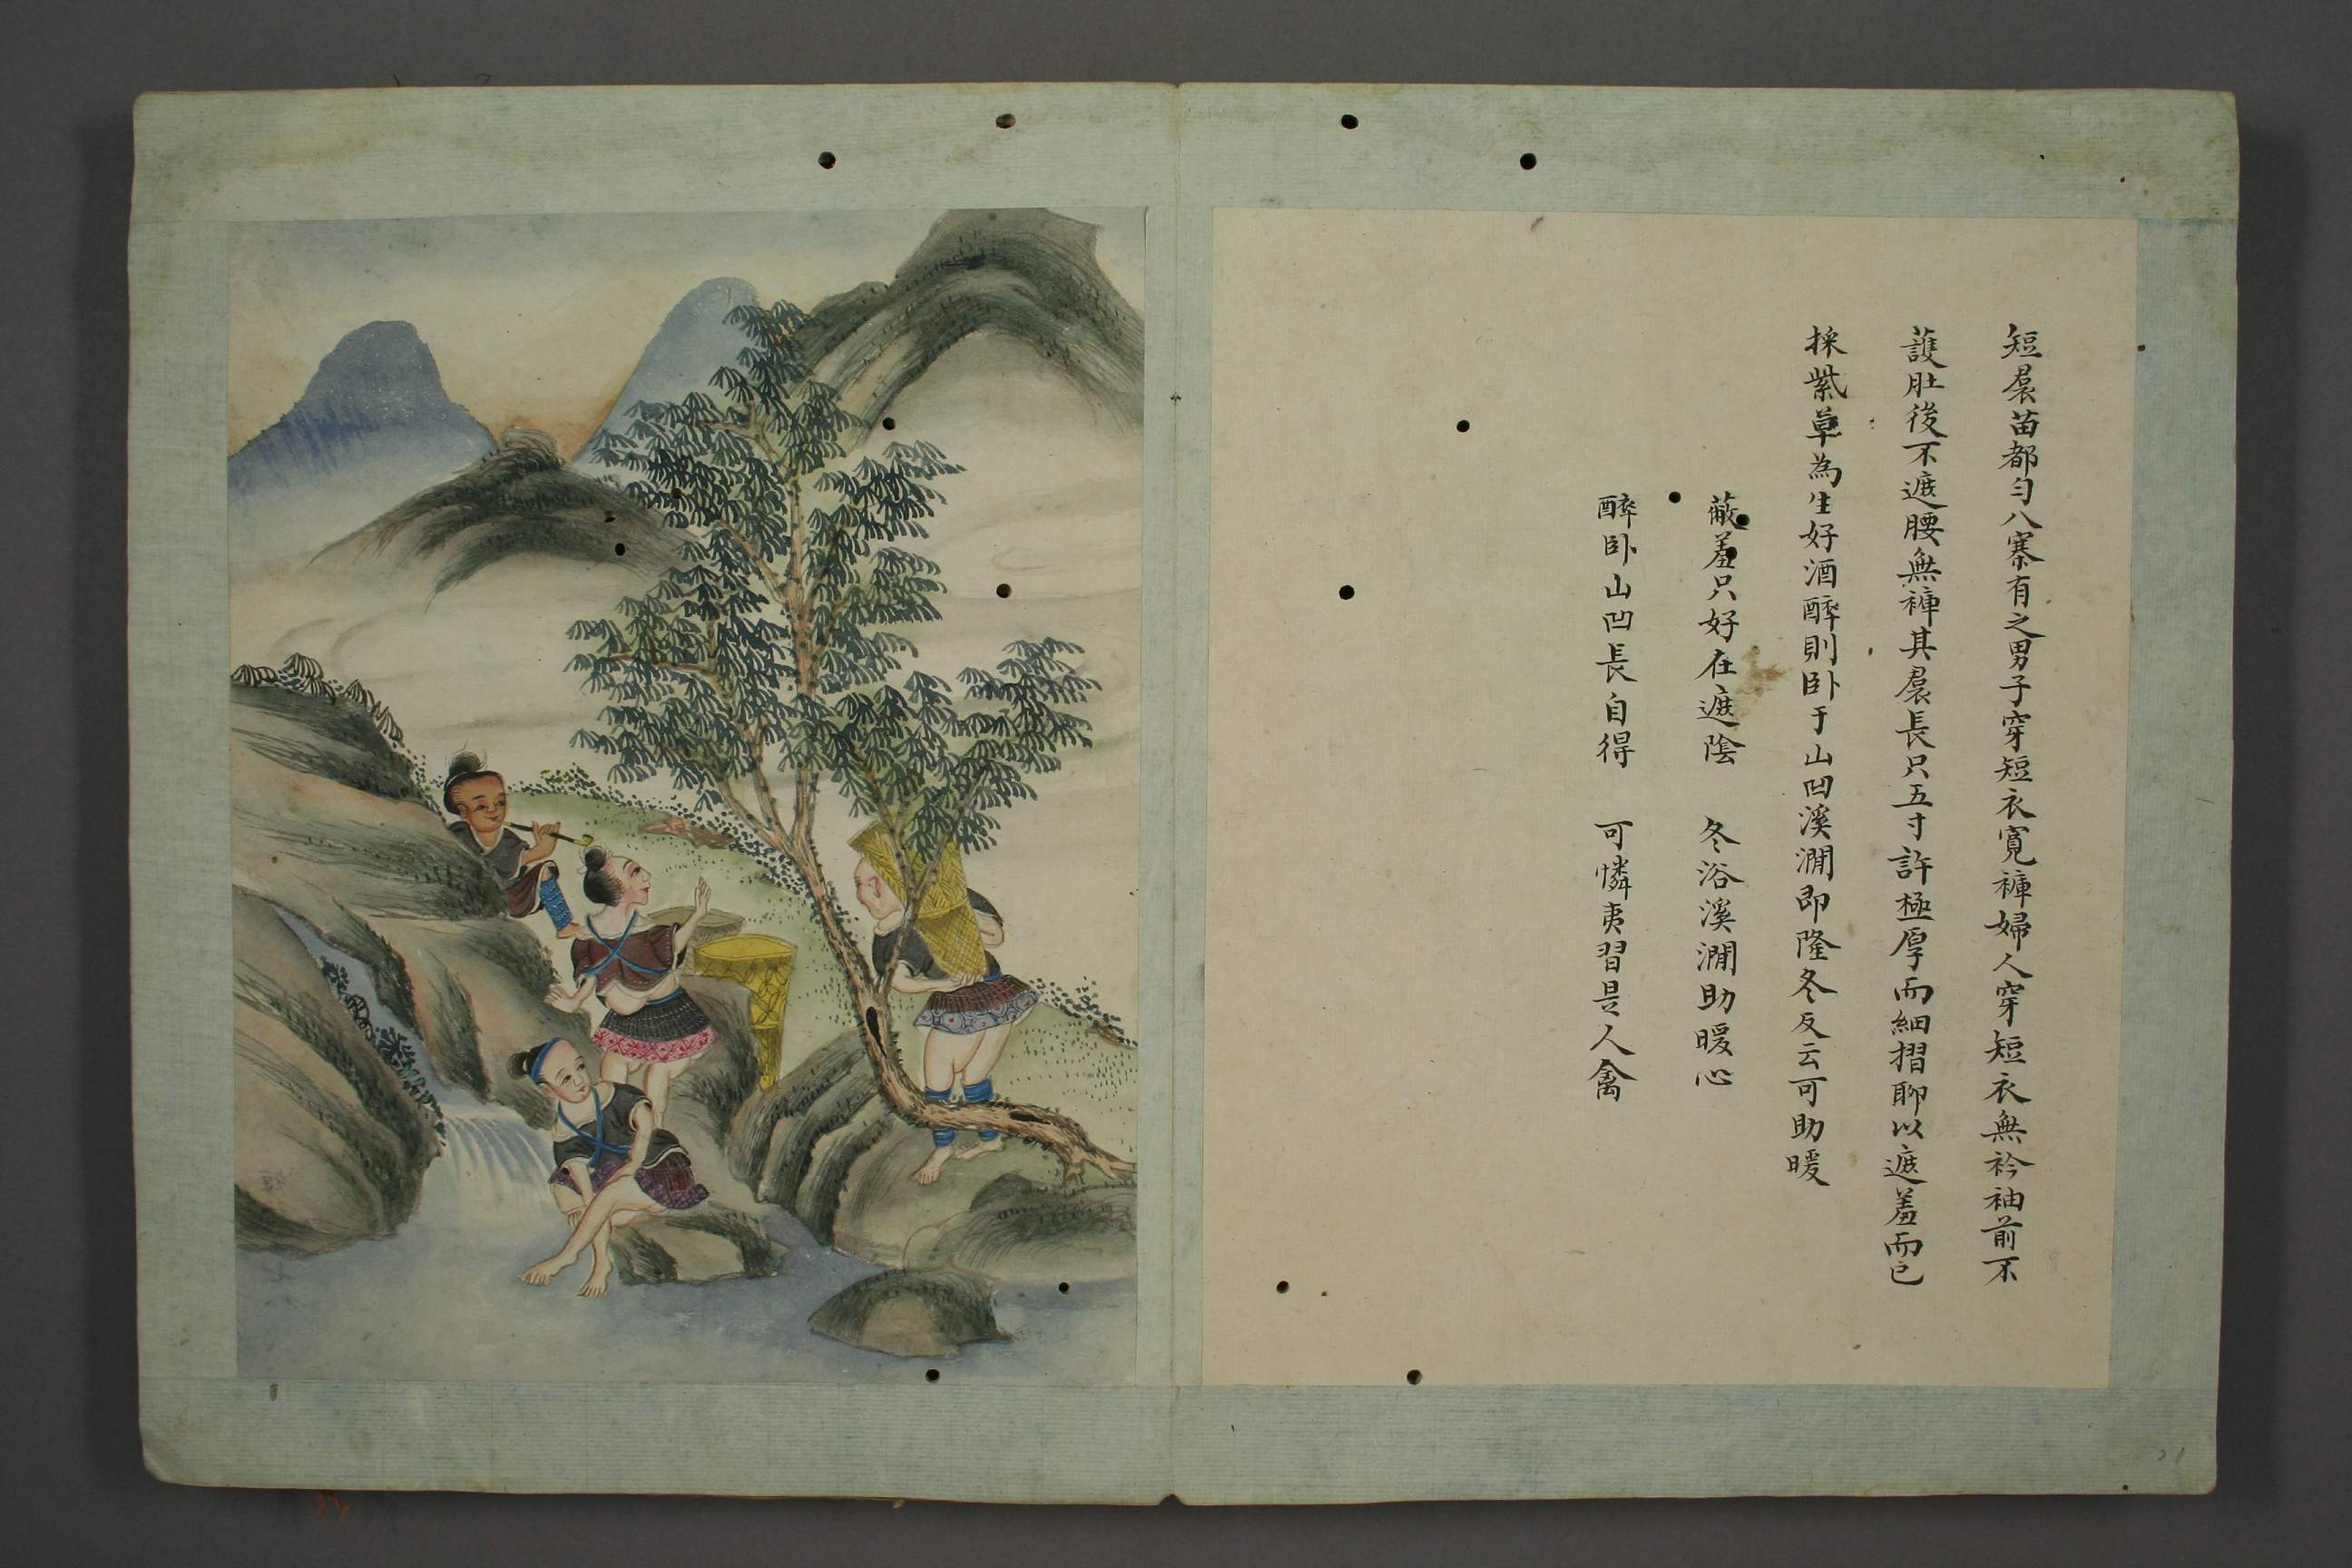 短裠苗都匀八寨有之男子穿短衣寬褲婦人穿短衣無衿袖前不
護肚後不遮腰無褲其裠長只五寸許極厚而細摺聊以遮羞而已
採紫草為生好酒醉則卧于山凹溪澗即隆冬反云可助暖
蔽羞只好在遮陰 冬浴溪澗助暖心
醉卧山凹長自得 可憐夷習是人禽
21